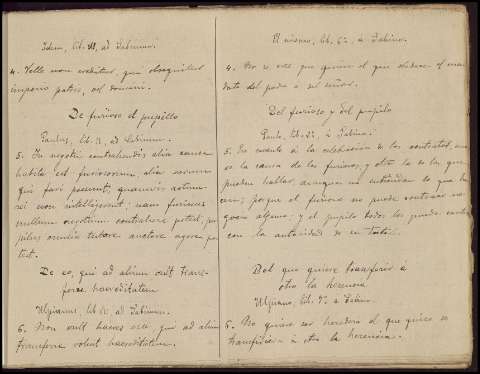 Idem, lib. ad Sabinum.
4. Velle non creditur, qui obsequitur
imperio patris, vel domini.
De furioso et pupillo
Paulus, lib. ad Sabinum.
5. In negotiis contrahendis alia causa
habita est furiosorum, alia eorum
qui fari possunt, quamvis actum
rei non intelligerent; nam furiosus
nullum negotium contrahere potest, pu-
pillus omnia tutore auctore agere po-
test.
De eo, qui ad alium vult trans-
ferre haereditatem
Ulpianus, lib. ad Sabinum.
6. Non vult haeres esse, qui ad alium
transferre voluit haereditatem.
El mismo, lib. á Sabino.
4. No se cree que quiere el que obedece al man-
dato del padre ó del señor.
Del furioso y del pupilo
Paulo, lib. á Sabino.
5. En cuanto á la celebracion de los contratos, una
es la causa de los furiosos, y otra la de los que
pueden hablar, aunque no entiendan lo que ha-
cen; porque el furioso no puede contraer ne-
gocio alguno; y el pupilo todos los puede
con la autoridad de su tutor.
Del que quiere transferir á
otro la herencia.
Ulpiano, lib. á Sabino.
6. No quiere ser heredero el que quiere se
transfiriera á otro la herencia.